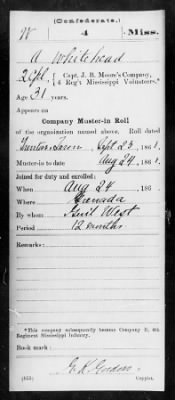 (Confederate.)
W 4 Miss.
A Whitehead
2 Cpl, Capt. J. B. Moore's Company,
4 Reg't Mississippi Volunteers.*
Age 31 years.
Appears on
Company Muster-in Roll
of the organization named above. Roll dated
Sept 23, 1861.
Muster-in to date Aug 24, 1861.
Joined for duty and enrolled:
When Aug 24, 186
Where Grenada
By whom West
Period 12 months
Remarks:
*This company subsequently became Company E, 4th
Regiment Mississippi Infantry.
Book mark:
G. K. Gordon
Copyist.